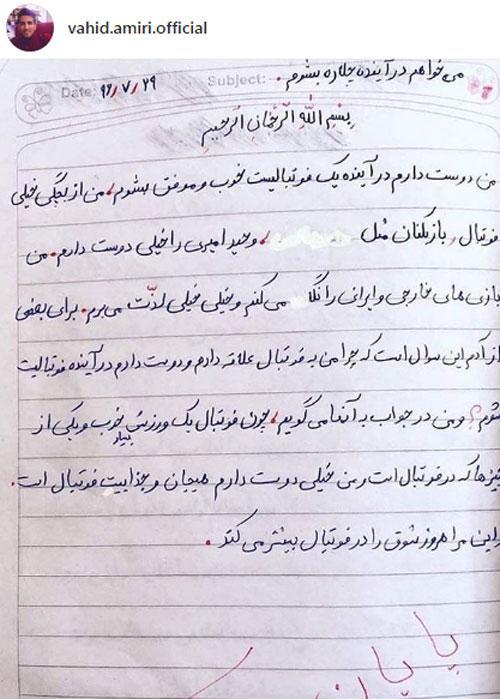 vahid.amiri.official
می خواهم در آینده چکاره بشوم.
Subject:
Date: ۹۶/۷/۲۹
بِسْمِ اللهِ الرَّحْمانِ الرَّحیمِ
من دوست دارم در آینده یک فوتبالیست خوب و موفق بشوم، من از بچگی خیلی
فوتبال و بازیکنان مثل ، وحید امیری را خیلی دوست دارم. من
بازی های خارجی و ایرانی را نگا می کنم و خیلی خیلی لذّت می برم. برای بعضی
از آدم این سوال است که چرا من به فوتبال علاقه دارم و دوست دارم در آینده فوتبالیت
شوم؟ و من در جواب به آنها می گویم، چون فوتبال یک ورزش بسیار خوب و یکی از
چیزها که در فوتبال است و من خیلی دوست دارم هیجان و جذابیت فوتبال است.
و این مرا هر روز شوق را در فوتبال بیشتر می کند.
پایان